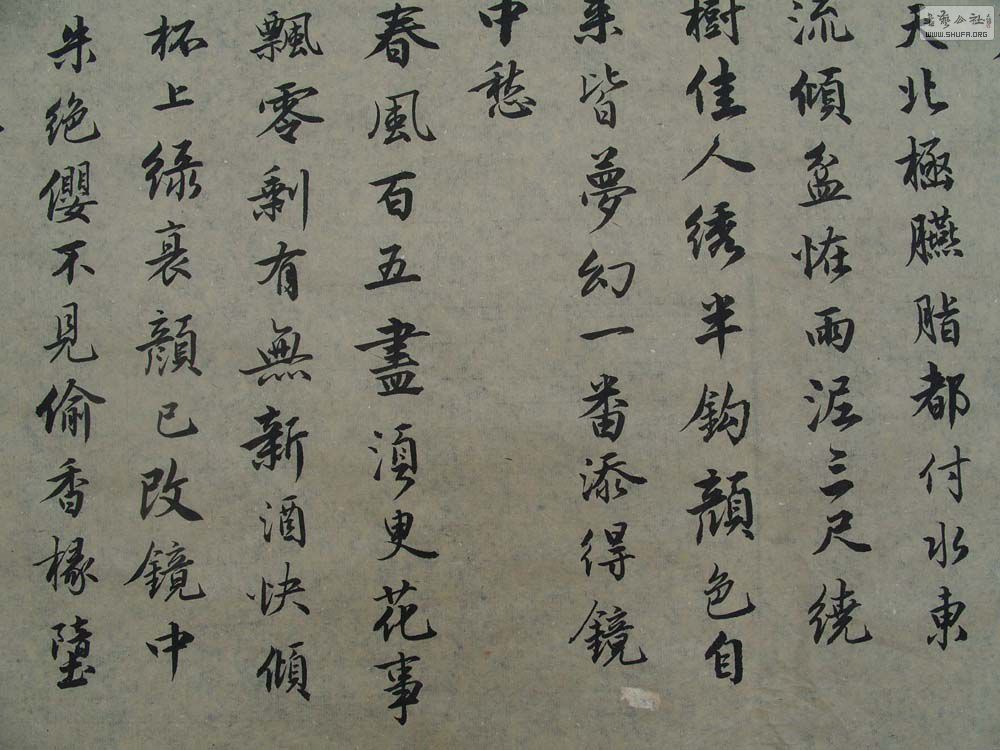 书艺公社
WWW.SHUFA.ORG
天北極臙脂都付水東
流傾盆恠雨泥三尺繞
樹佳人綉半鈎顔色自
來皆夢幻一番添得鏡
中愁
春風百五盡湏臾花事
飄零剩有無新酒快傾
杯上緑衰顔已改鏡中
朱絶纓不見偷香椽墮